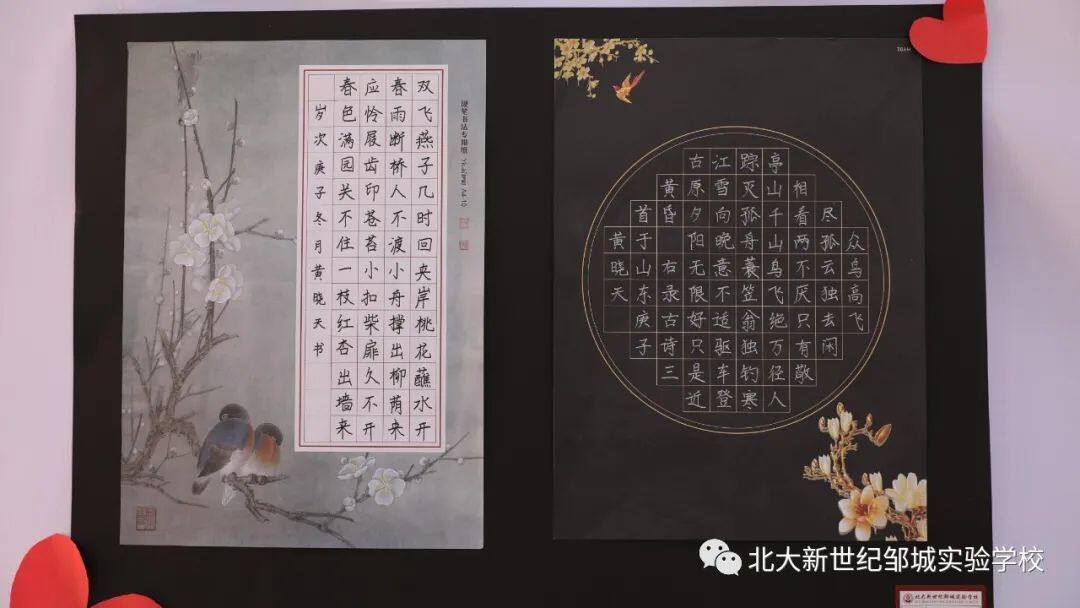 双飞燕子几时回夹岸桃花蘸水开
春雨断桥人不渡小舟撑出柳荫来
应怜屐齿印苍苔小扣柴扉久不开
春色满园关不住一枝红杏出墙来
岁次庚子冬月黄晓天书
硬笔书法专用纸
众鸟高飞
尽孤云独去闲
相看两不厌只有敬
亭山千山鸟飞绝万径人
踪灭孤舟蓑笠翁独钓寒
江雪向晚意不适驱车登
古原夕阳无限好只是近
黄昏 右录古诗三
首于山东庚子
黄晓天
北大新世纪邹城实验学校
北大新世纪邹城实验学校